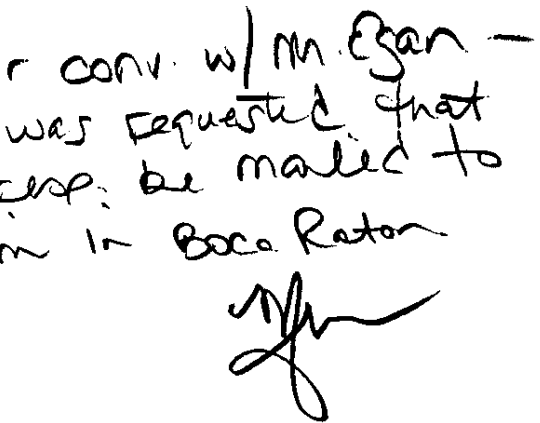 r conv. w/ M. Egan —
was requested that
resp. be mailed to
m in Boca Raton